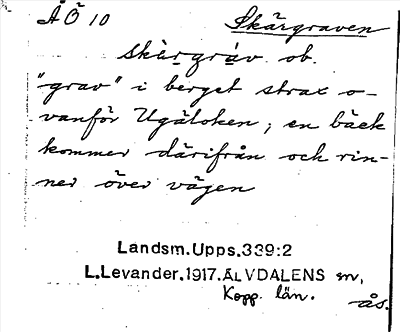 ÅÖ 10 Skärgraven
skärgrav ob.
"grav" i berget strax o-
vanför Ugäloken; en bäck
kommer därifrån och rin-
ner över vägen
Landsm.Upps.339:2
L.Levander.1917.ÄLVDALENS sn,
Kopp. län.
ås.